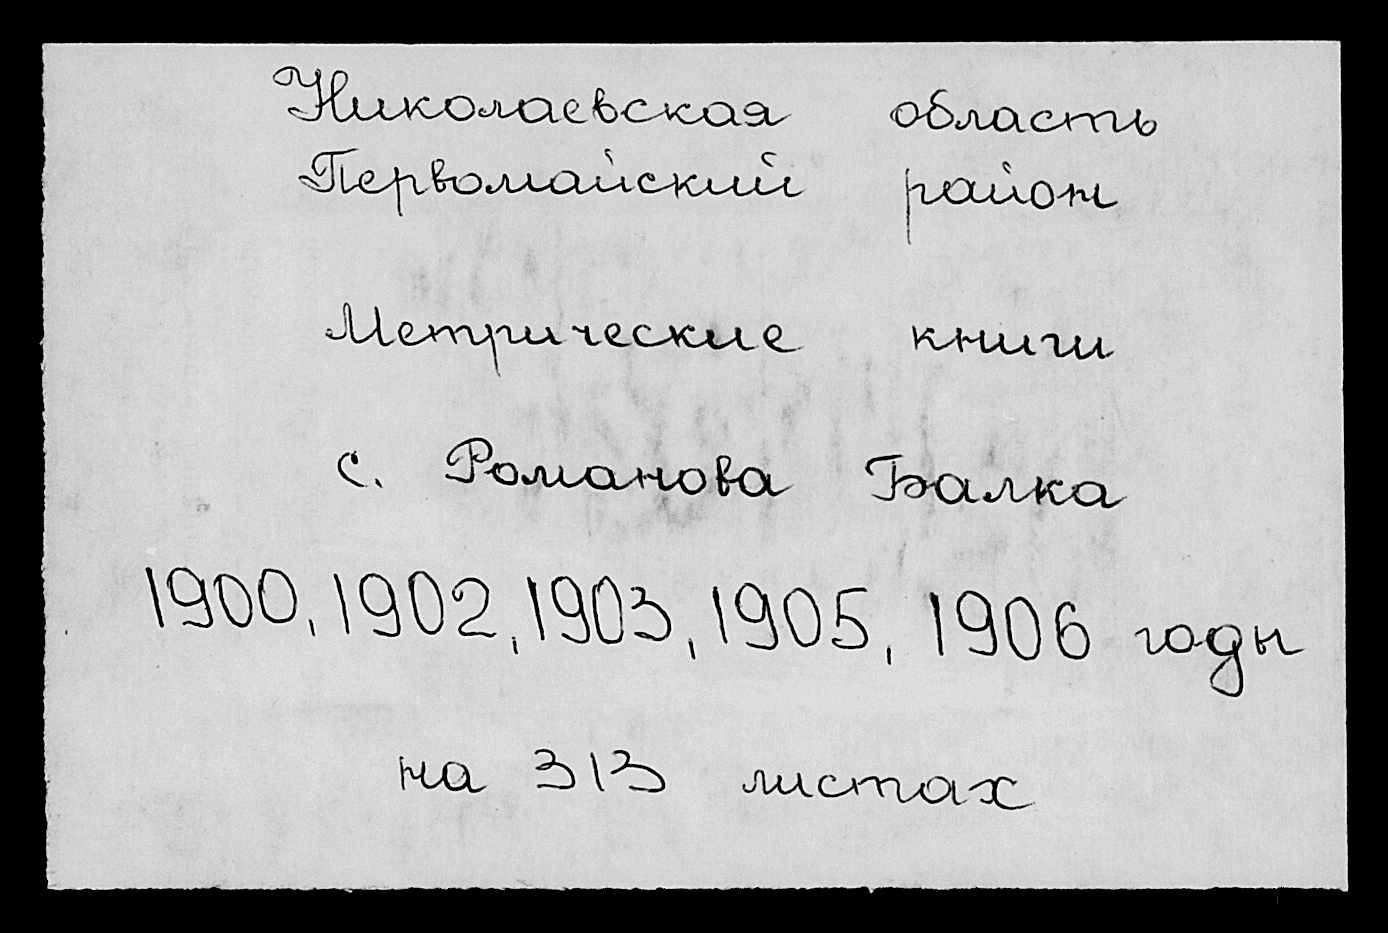 Николаевская область
Первомайский район
Метрические книги
с. Романова Балка
1900, 1902, 1903, 1905, 1906 годы
на 313 листах